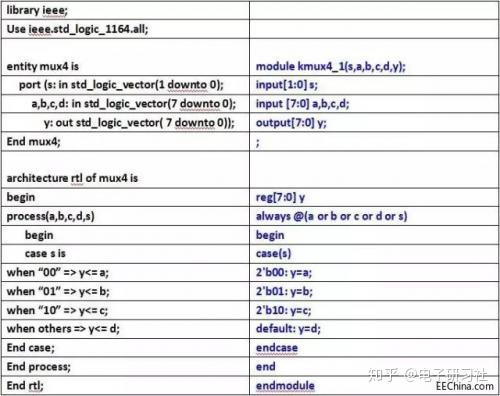 library ieee;
Use ieee.std_logic_1164.all;
entity mux4 is module kmux4_1(s,a,b,c,d,y);
port (s: in std_logic_vector(1 downto 0); input[1:0] s;
a,b,c,d: in std_logic_vector(7 downto 0); input [7:0] a,b,c,d;
y: out std_logic_vector( 7 downto 0)); output[7:0] y;
End mux4; ;
architecture rtl of mux4 is
begin reg[7:0] y
process(a,b,c,d,s) always @(a or b or c or d or s)
begin begin
case s is case(s)
when “00” => y<= a; 2'b00: y=a;
when “01” => y<= b; 2'b01: y=b;
when “10” => y<= c; 2'b10: y=c;
when others => y<= d; default: y=d;
End case; endcase
End process; end
End rtl; endmodule
知乎 @电子研习社
EEChina.com